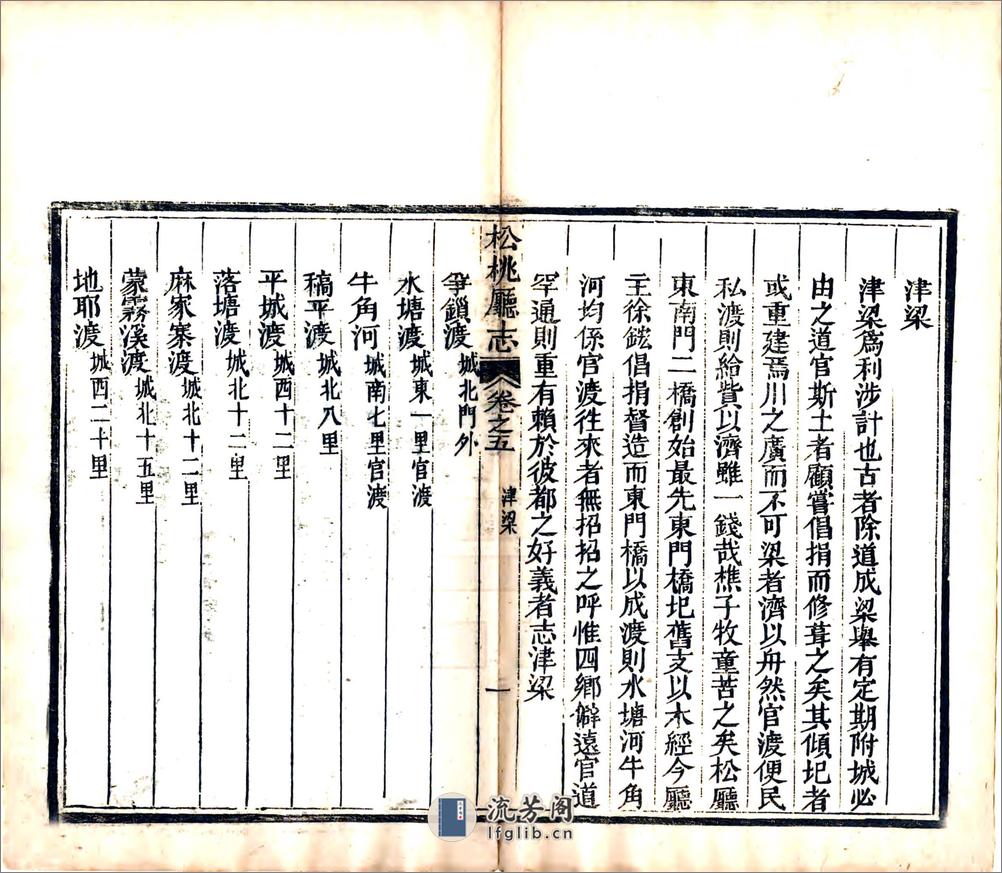 津梁
津梁爲利涉計也古者除道成梁舉有定期附城必
由之道官斯土者顧嘗倡捐而修葺之矣其傾圮者
或重建焉川之廣而不可梁者濟以舟然官渡便民
私渡則給貲以濟雖一錢哉樵子牧童苦之矣松廳
東南門二橋創始最先東門橋圮舊支以木經今廳
主徐鋐倡捐督造而東門橋以成渡則水塘河牛角
河均係官渡往來者無招招之呼惟四鄉僻遠官道
罕通則重有賴於彼都之好義者志津梁
松桃廳志 卷之五 津梁 一
爭鎖渡城北門外
水塘渡城東一里官渡
牛角河城南七里官渡
稿平渡城北八里
平城渡城西十二里
落塘渡城北十二里
麻家寨渡城北十二里
蒙霧溪渡城北十五里
地耶渡城西二十里
流芳阁
lfglib.cn